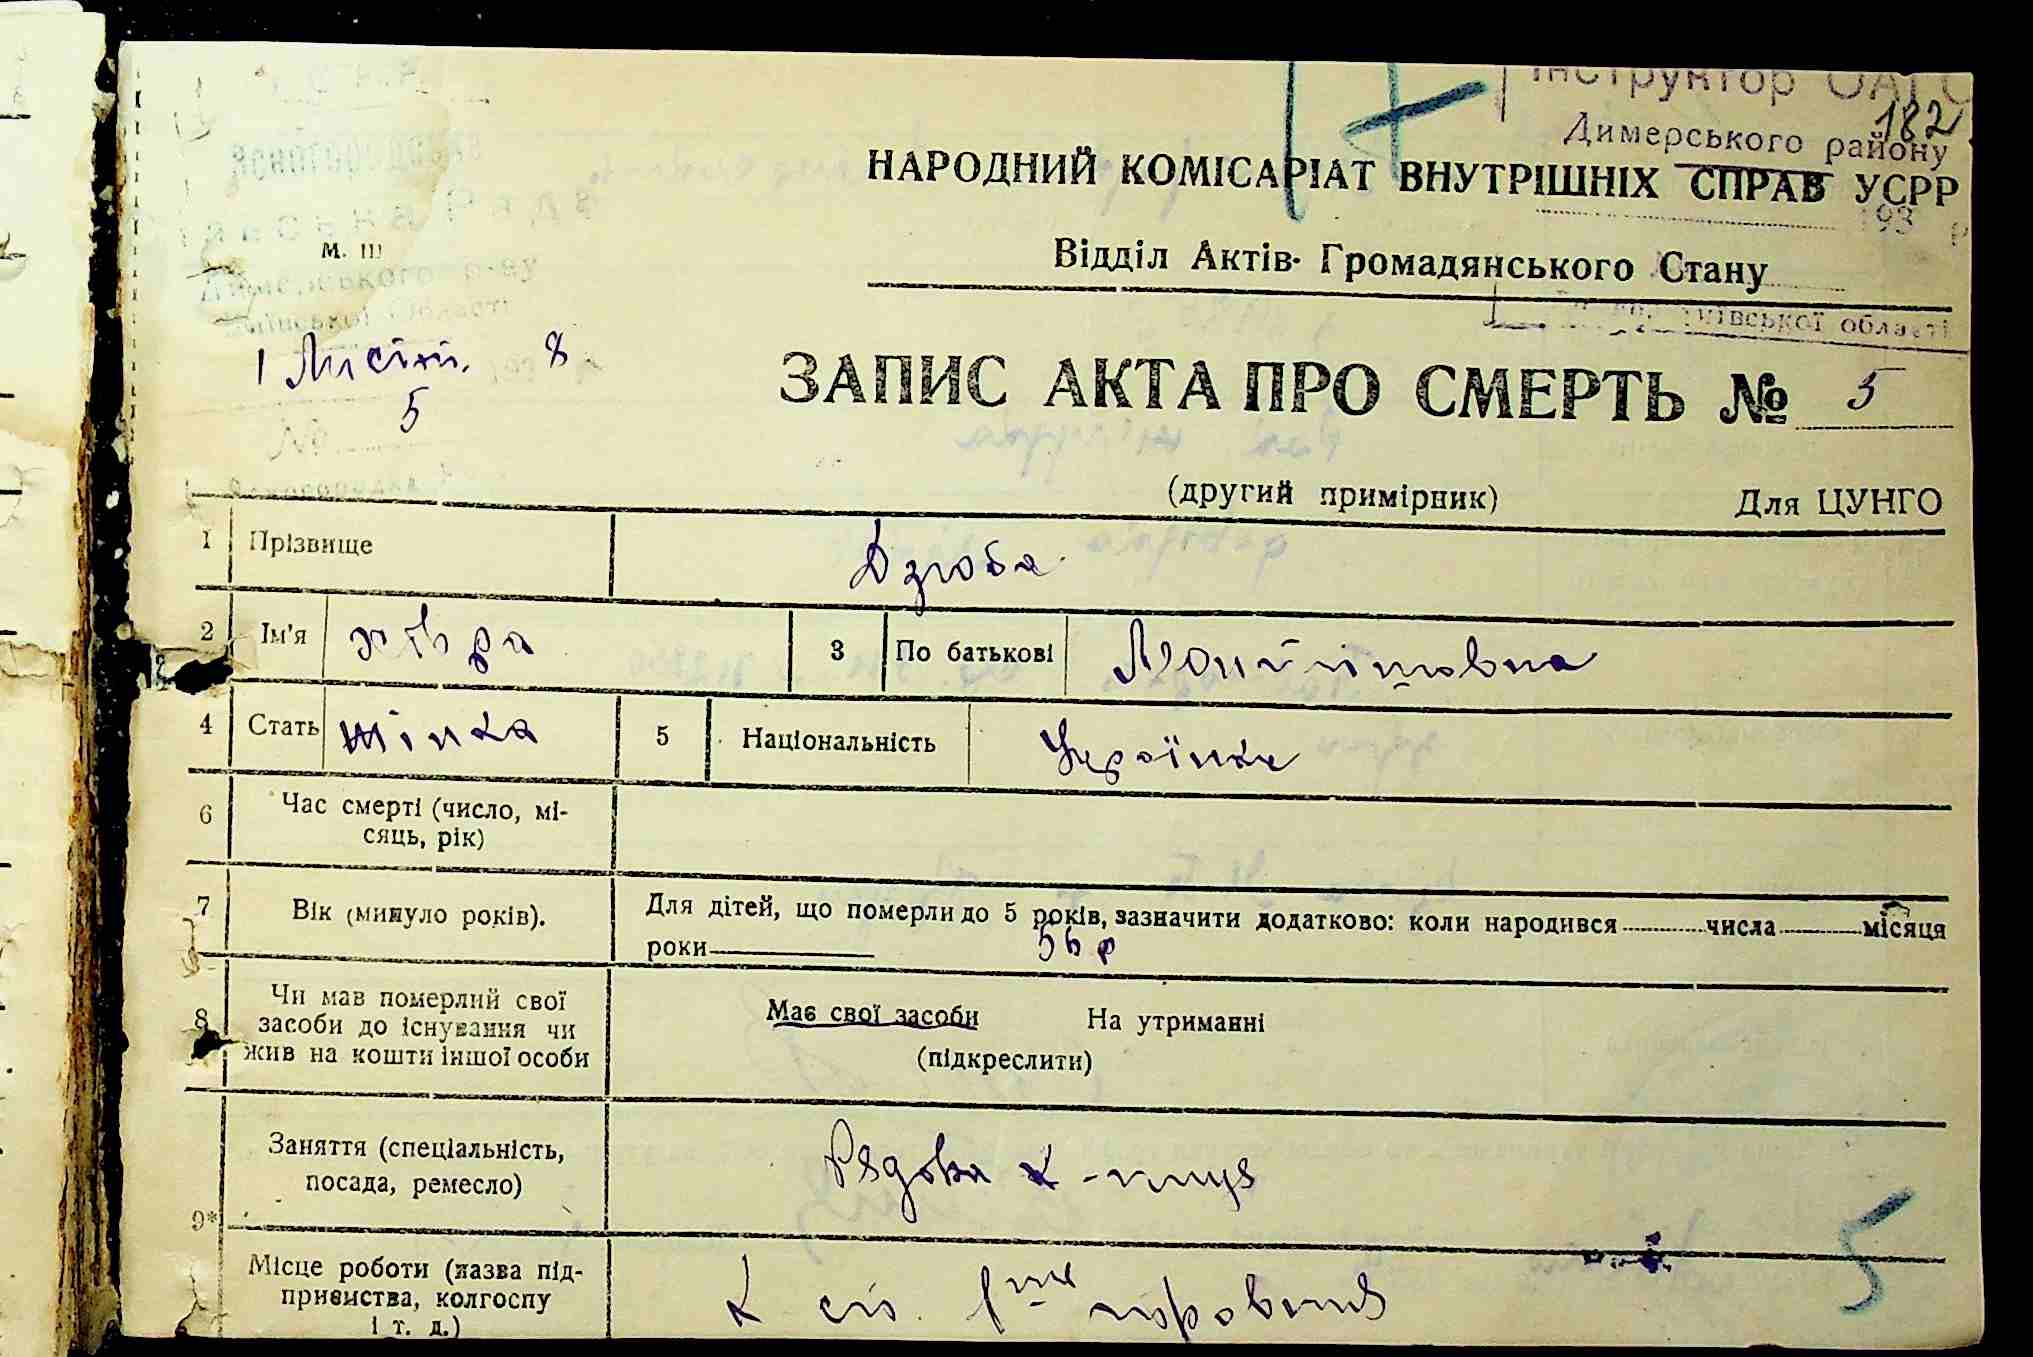 Інструктор ОАГС
182
Димерського району
НАРОДНИЙ КОМІСАРІАТ ВНУТРІШНІХ СПРАВ УСРР
193 р
м. Ш
Відділ Актів Громадянського Стану
Київської області
1 Листоп. 8
5
№
ЗАПИС АКТА ПРО СМЕРТЬ № 5
(другий примірник) Для ЦУНГО
1 Прізвище Дзюба
2 Ім'я Хівря 3 По батькові
4 Стать жінка 5 Національність Українка
6 Час смерті (число, мі-
сяць, рік)
7 Вік (минуло років). Для дітей, що померли до 5 років, зазначити додатково: коли народився числа місяця
роки 56 р
8 Чи мав померлий свої
засоби до існування чи
жив на кошти іншої особи
Має свої засоби На утриманні
(підкреслити)
Заняття (спеціальність,
посада, ремесло) Рядова к-ниця
9*
Місце роботи (назва під-
приємства, колгоспу
і т. д.)
5